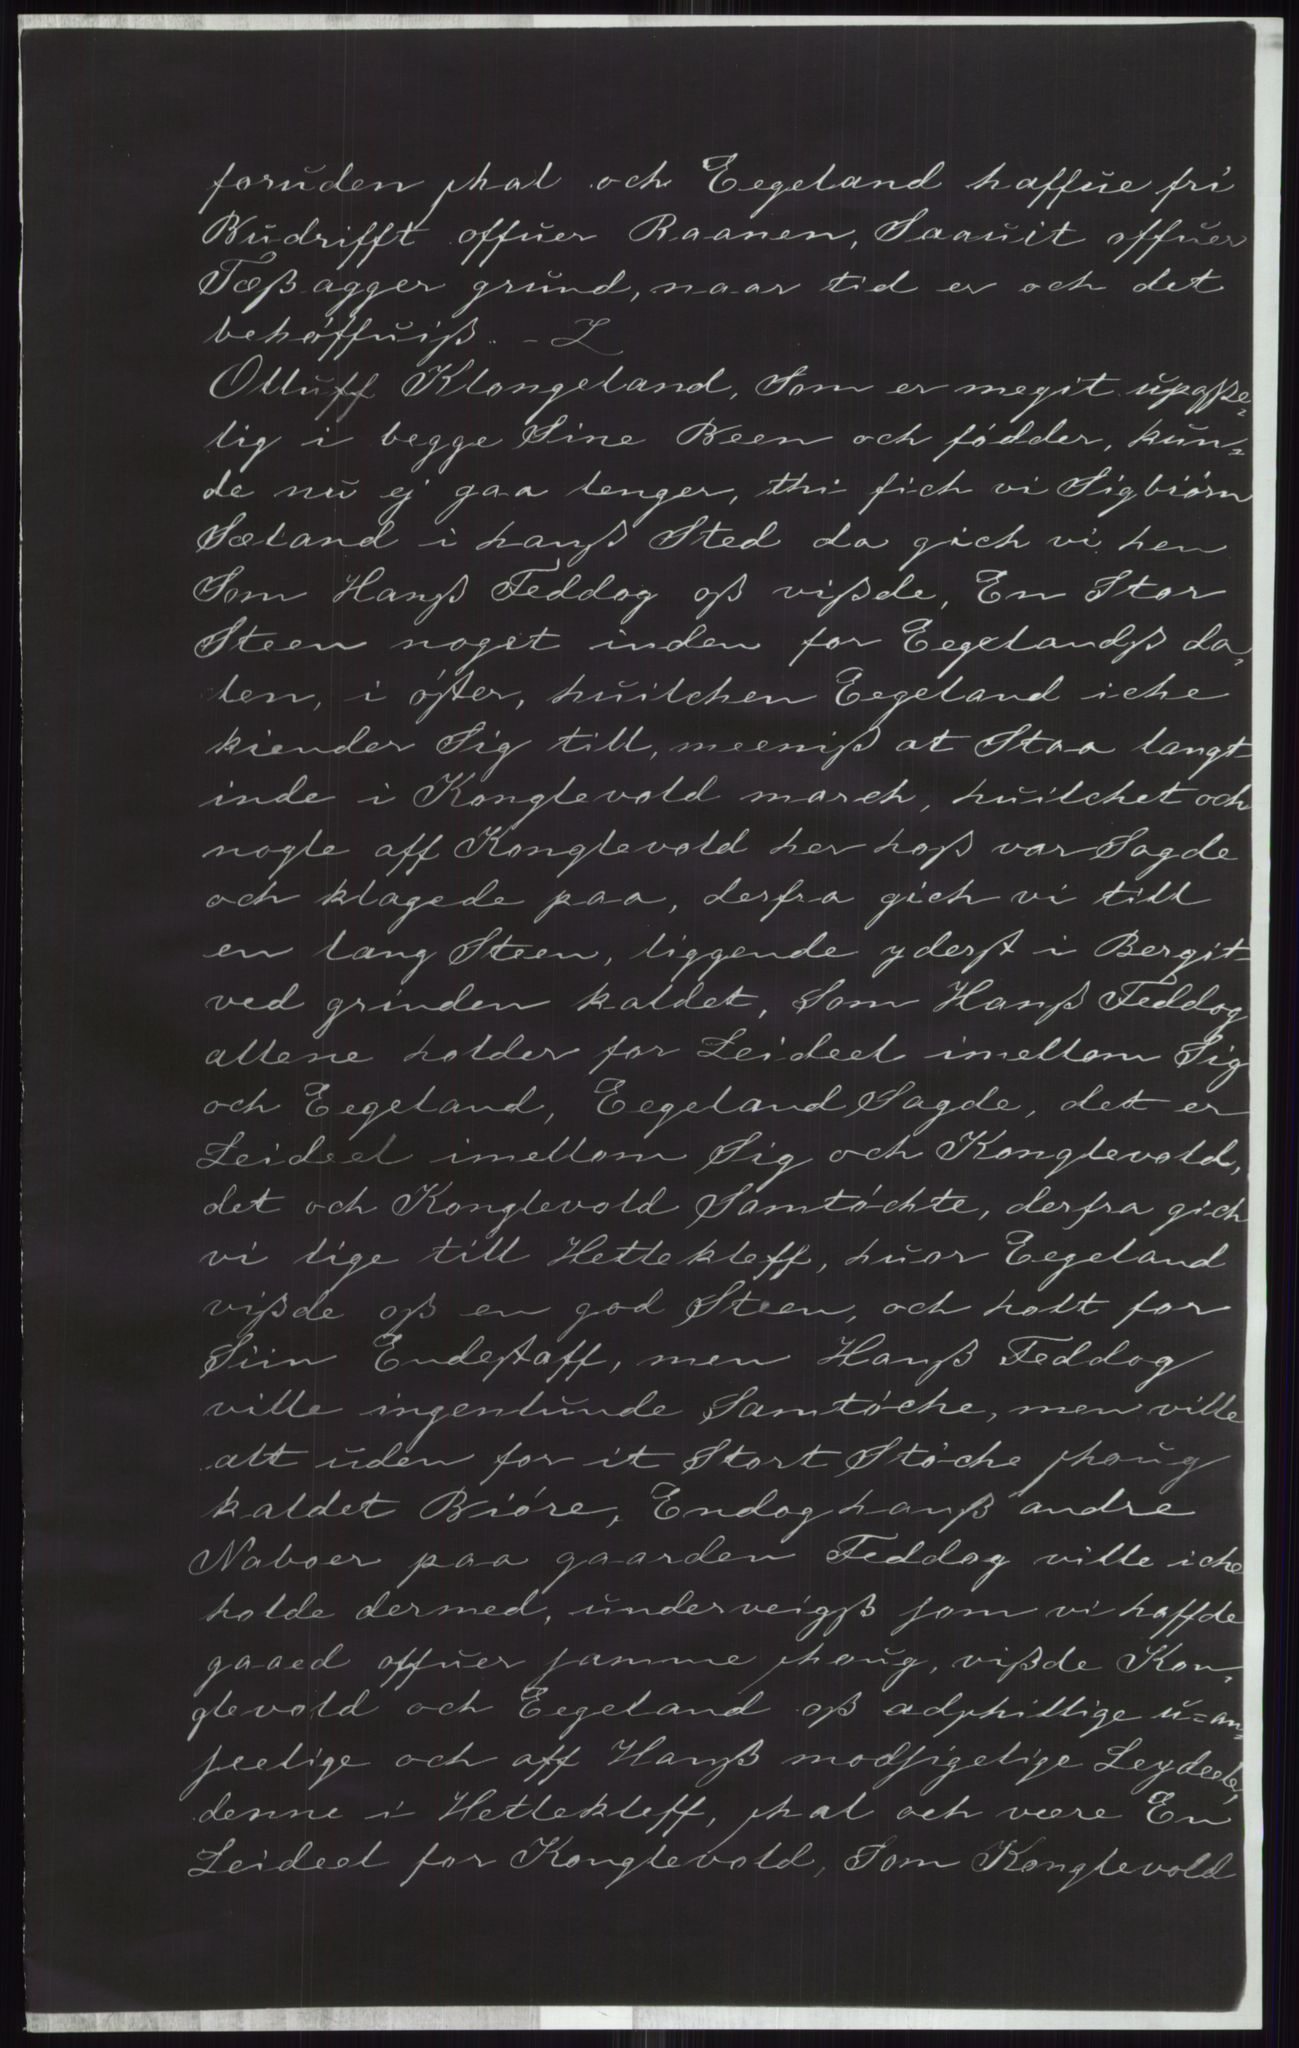 foruden skal och Eegeland haffue fri
Budrifft offuer Raanen, Saauit offuer
Tæßagger grund, naar tid er och det
behøffuiß. -
Olluff Klongeland, Som er megit upaße=
lig i begge Sine Been och fødder, kun=
de nu ej gaa lenger, thi fich vi Sigbiørn
Sæland i hanß Sted da gich vi hen
Som Hanß Feddog oß vißde, En Stor
Steen noget inden for Eegelandß da,
len, i øster, huilchen Eegeland iche
kiender Sig till, meeniß at Staa langt
inde i Konglevold march, huilchet och
nogle aff Konglevold her hoß var Sagde
och klagede paa, derfra gich vi till
en lang Steen, liggende yderst i Bergit
ved grinden kaldet, Som Hanß Feddog
allene holder for Leideel imellom Sig
och Eegeland, Eegeland Sagde, det er
Leideel imellom Sig och Konglevold,
det och Konglevold Samtøchte, derfra gich
vi lige till Hettekleff, huor Eegeland
vißde oß en god Steen, och holt for
Siin Endestaff, men Hanß Feddog
ville ingenlunde Samtøche, men ville
alt uden for it Stort Støche skoug
kaldet Biøre, Endog hanß andre
Naboer paa gaarden Feddog ville iche
holde dermed, underveigß som vi haffde
gaaed offuer samme skoug, vißde Kon,
glevold och Eegeland oß adskillige u=an=
seelige och aff Hanß modsigelige Leydeeler,
denne i Hettekleff, skal och være En
Leideel for Konglevold, Som Konglevold